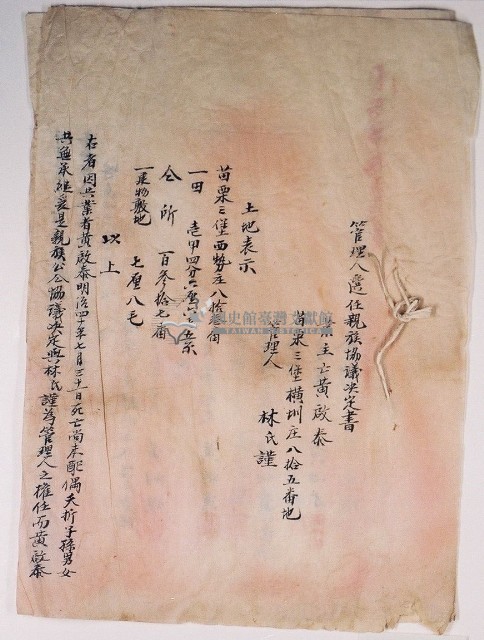 管理人選任親族協議決定書
業主亡黃啟泰
苗栗三堡橫圳庄八拾五番地
管理人 林氏謹
土地表示
苗栗三堡西勢庄八拾叁番
一田 壱甲四分六厘六毛五糸
仝所 百參拾七番
一建物敷地 七厘八毛
以上
右者因共業者黃啟泰明治四十年七月三十一日死亡尚未配偶夭折子孫男女
共無承繼爰是親族公仝協議決定與林氏謹為管理人之權任而黃啟泰
國史館臺灣文獻館
TAIWAN HISTORICA